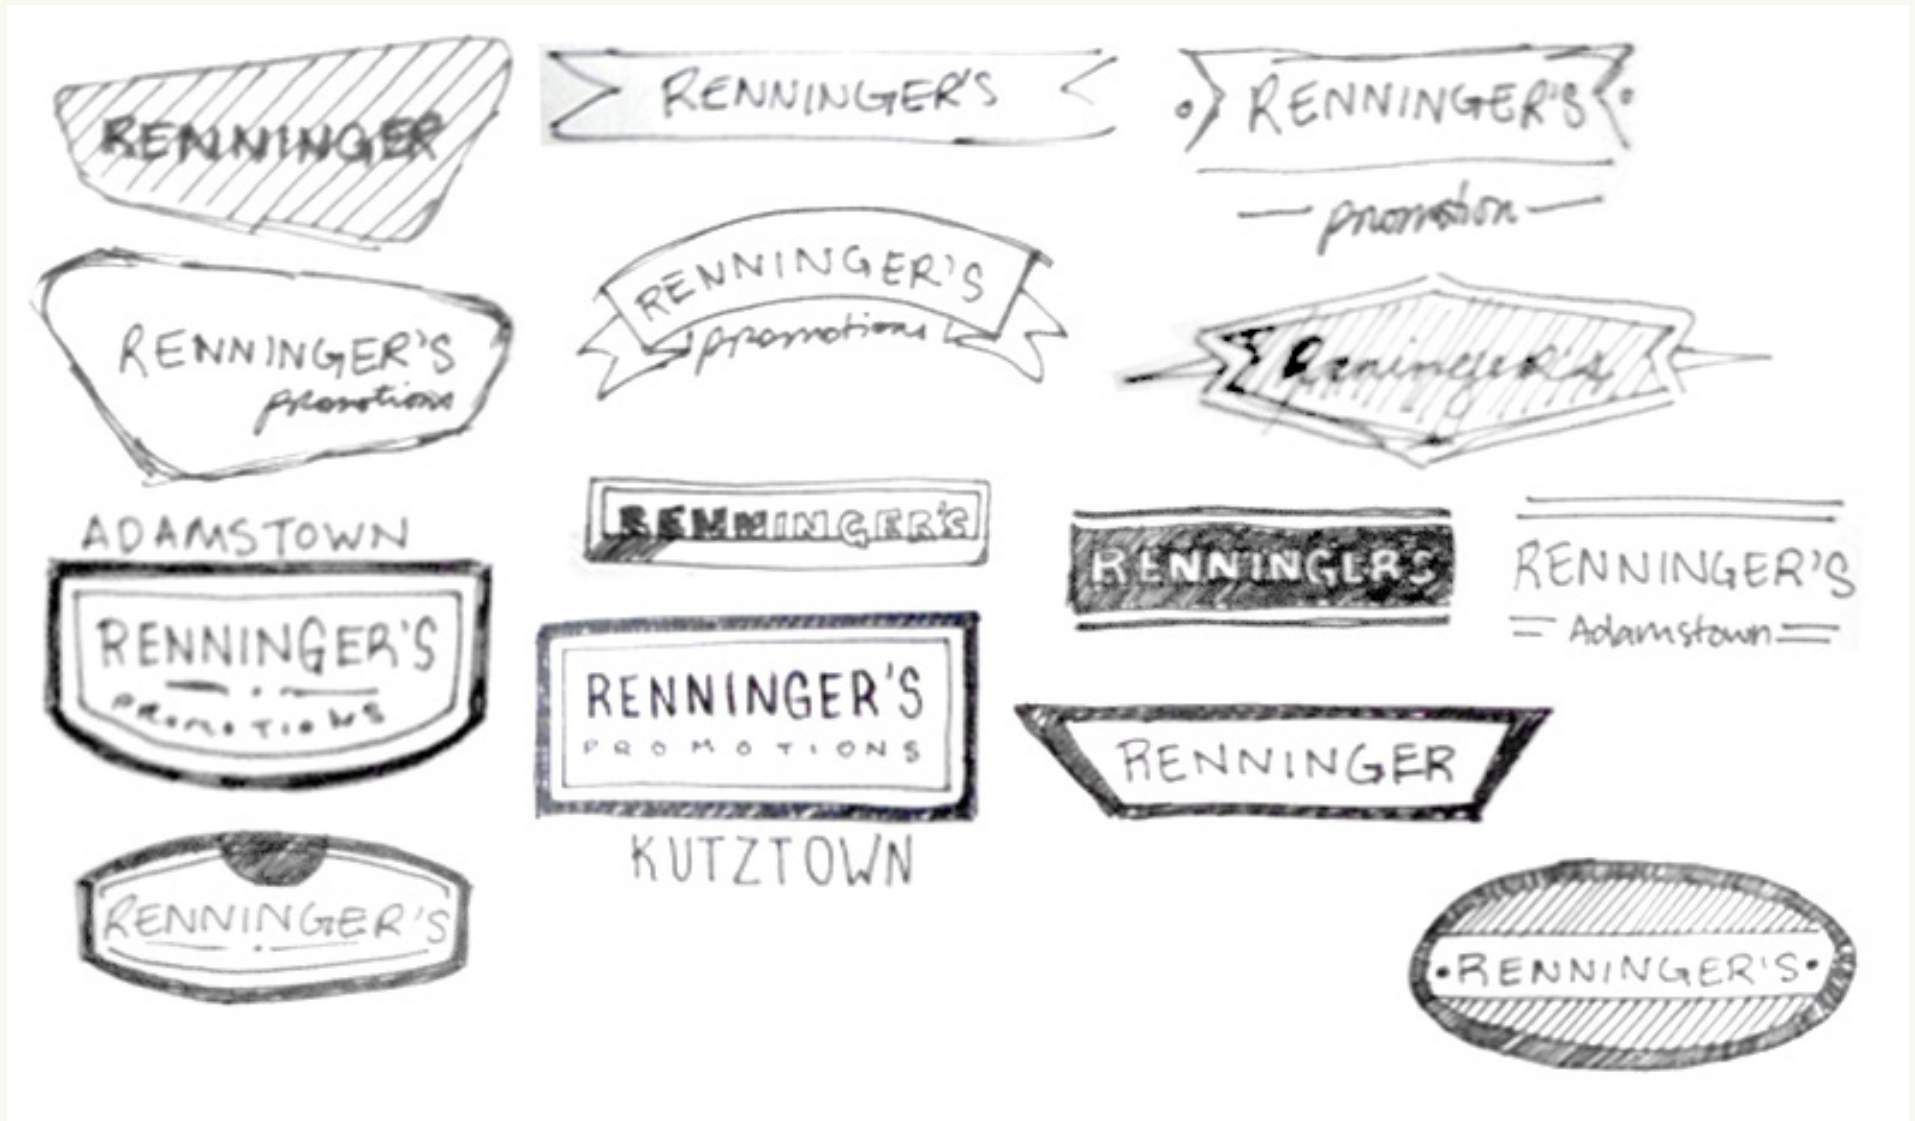 RENNINGER
RENNINGER'S
RENNINGER'S
promotion
RENNINGER'S
promotions
RENNINGER'S
promotions
Renninger's
ADAMSTOWN
RENNINGER'S
PROMOTIONS
RENNINGER'S
RENNINGER'S
RENNINGER'S
Adamstown
RENNINGER'S
PROMOTIONS
KUTZTOWN
RENNINGER
RENNINGER'S
RENNINGER'S